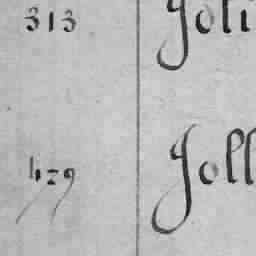 313 Joli
479 Joll